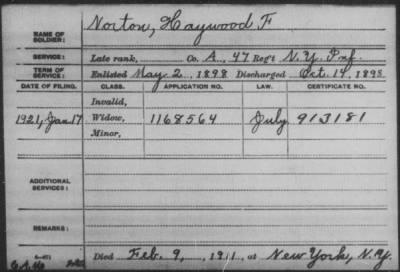 Norton, Haywood F
NAME OF SOLDIER:
SERVICE: Late rank, Co. A, 47 Reg't N.Y. Inf.
TERM OF SERVICE: Enlisted May 2, 1898 Discharged Oct. 14, 1898
DATE OF FILING. CLASS. APPLICATION NO. LAW. CERTIFICATE NO.
Invalid,
1921, Jan 17 Widow, 1168564 July 913181
Minor,
ADDITIONAL SERVICES:
REMARKS:
Died Feb. 9, 1911, at New York, N.Y.